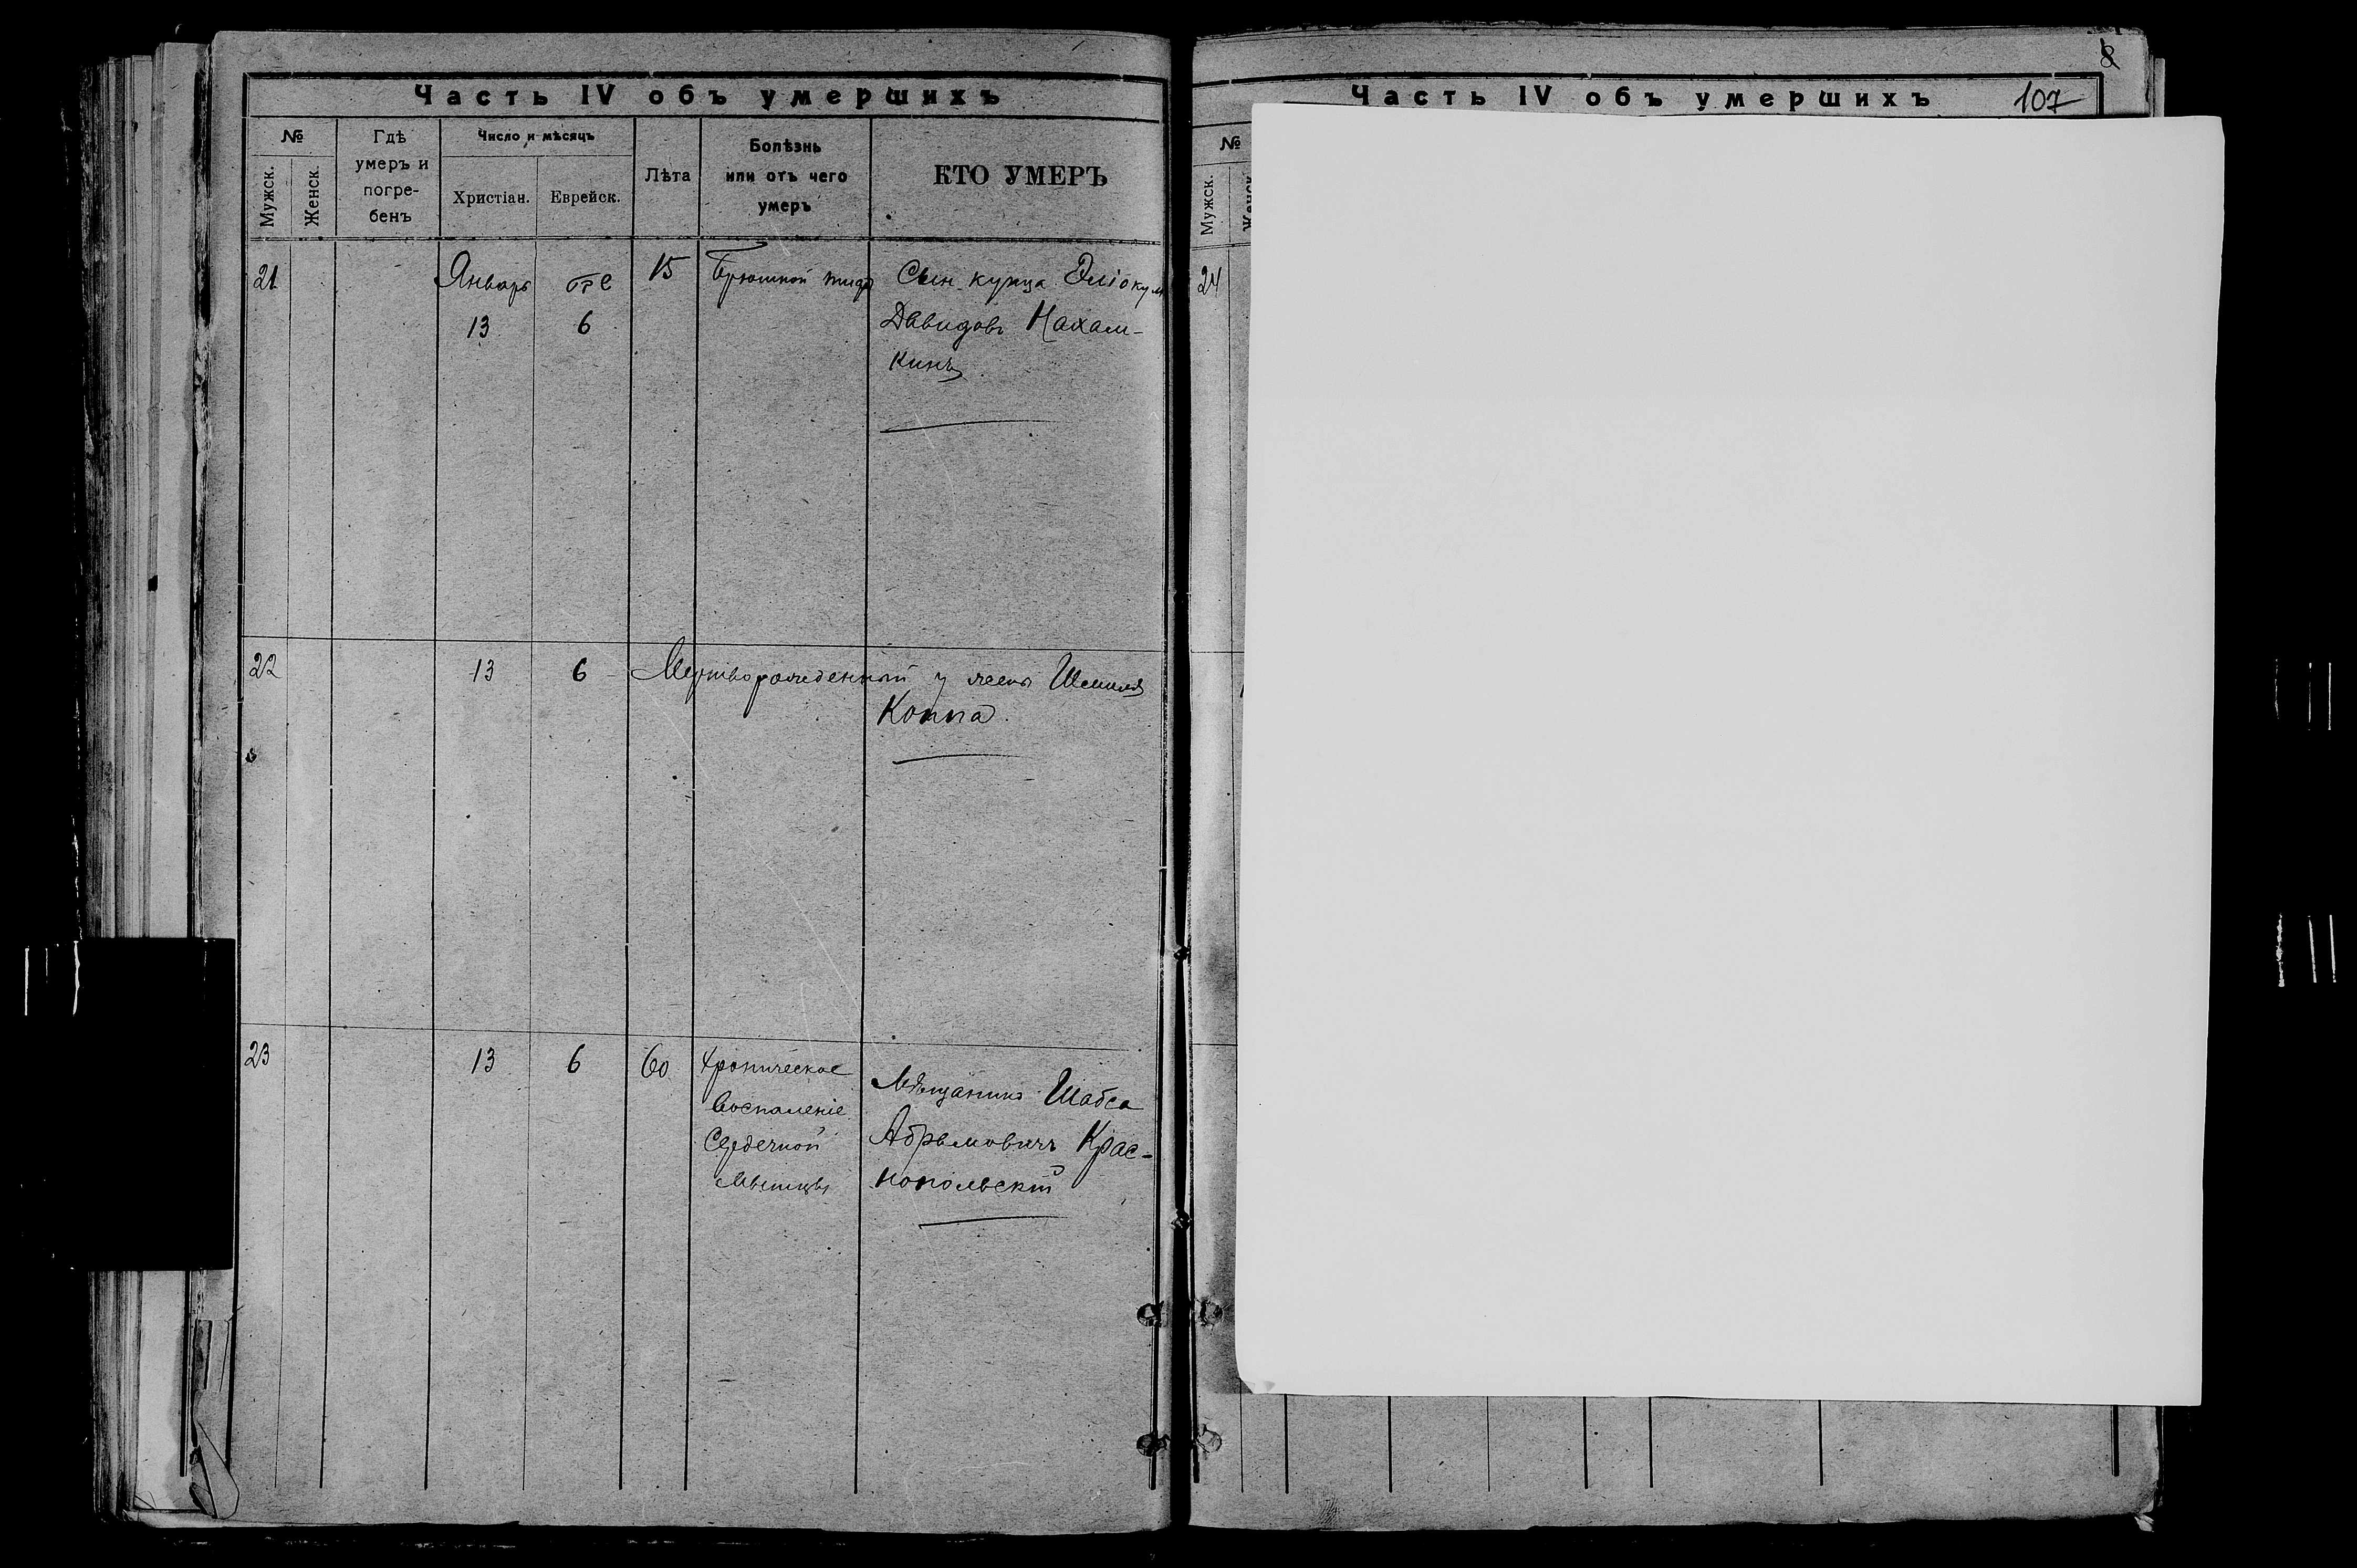 Часть IV объ умершихъ
№
Мужск.
Женск.
Гдѣ
умеръ и
погре-
бенъ
Число и мѣсяцъ
Христіан.
Еврейск.
Лѣта
Болѣзнь
или отъ чего
умеръ
КТО УМЕРЪ
21
Январь
13
6
15
Брюшной тиф
Сын купца
Давидовъ Нахам-
кинъ
22
13
6
Мертворожденный у жены Шмуля
Коппа
23
13
6
60
Хроническое
Воспаленіе
Сердечной
Мышцы
Мѣщанинъ Шабса
Абрамовичъ Крас-
нопольскій
8
Часть IV объ умершихъ
107
№
Мужск.
Женск
24